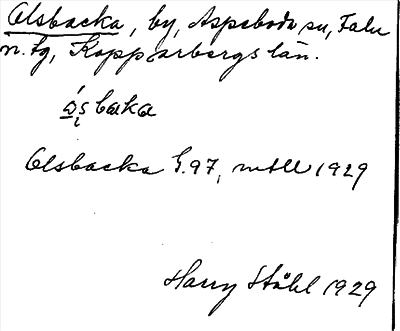 Olsbacka, by, Aspeboda sn, Falu
n. tg, Kopparbergs län.
ó̲s̩baka
Olsbacka G.97, mtll 1929
Harry Ståhl 1929